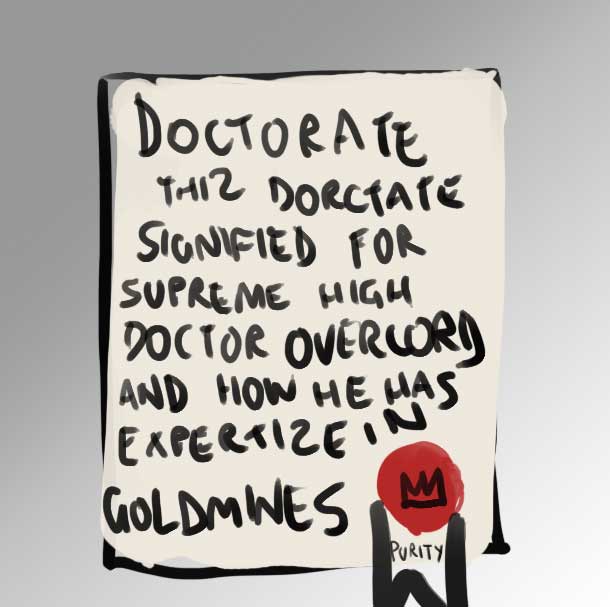 DOCTORATE
THIZ DORCTATE
SIGNIFIED FOR
SUPREME HIGH
DOCTOR OVERLORD
AND HOW HE HAS
EXPERTIZE IN
GOLDMINES
PURITY